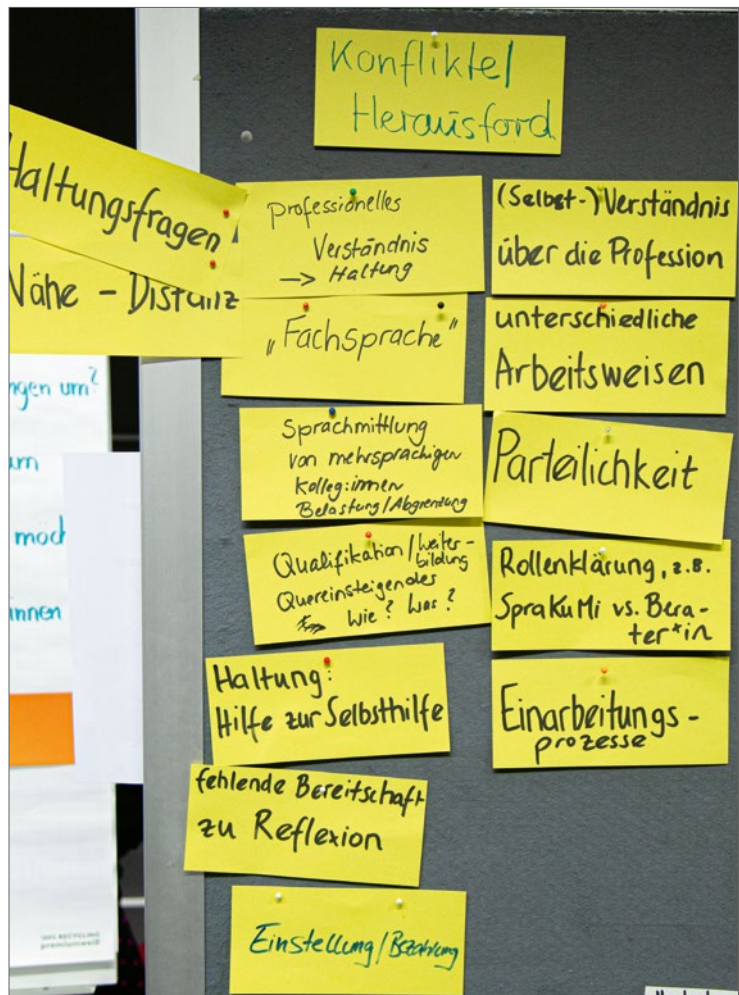 Konflikte/
Herausford.
Haltungsfragen
Nähe - Distanz
professionelles
Verständnis
→ Haltung
„Fachsprache"
Sprachmittlung
von mehrsprachigen
Kolleg:innen
Belastung/Abgrenzung
Qualifikation/Weiter-
bildung
Quereinsteigendes
Wie? Was?
Haltung:
Hilfe zur Selbsthilfe
fehlende Bereitschaft
zu Reflexion
Einstellung/Bezahlung
(Selbst-)Verständnis
über die Profession
unterschiedliche
Arbeitsweisen
Parteilichkeit
Rollenklärung, z.B.
SpraKuMi vs. Bera-
ter*in
Einarbeitungs-
prozesse
ngen um?
möch
innen
100% RECYCLING
premiumweiß